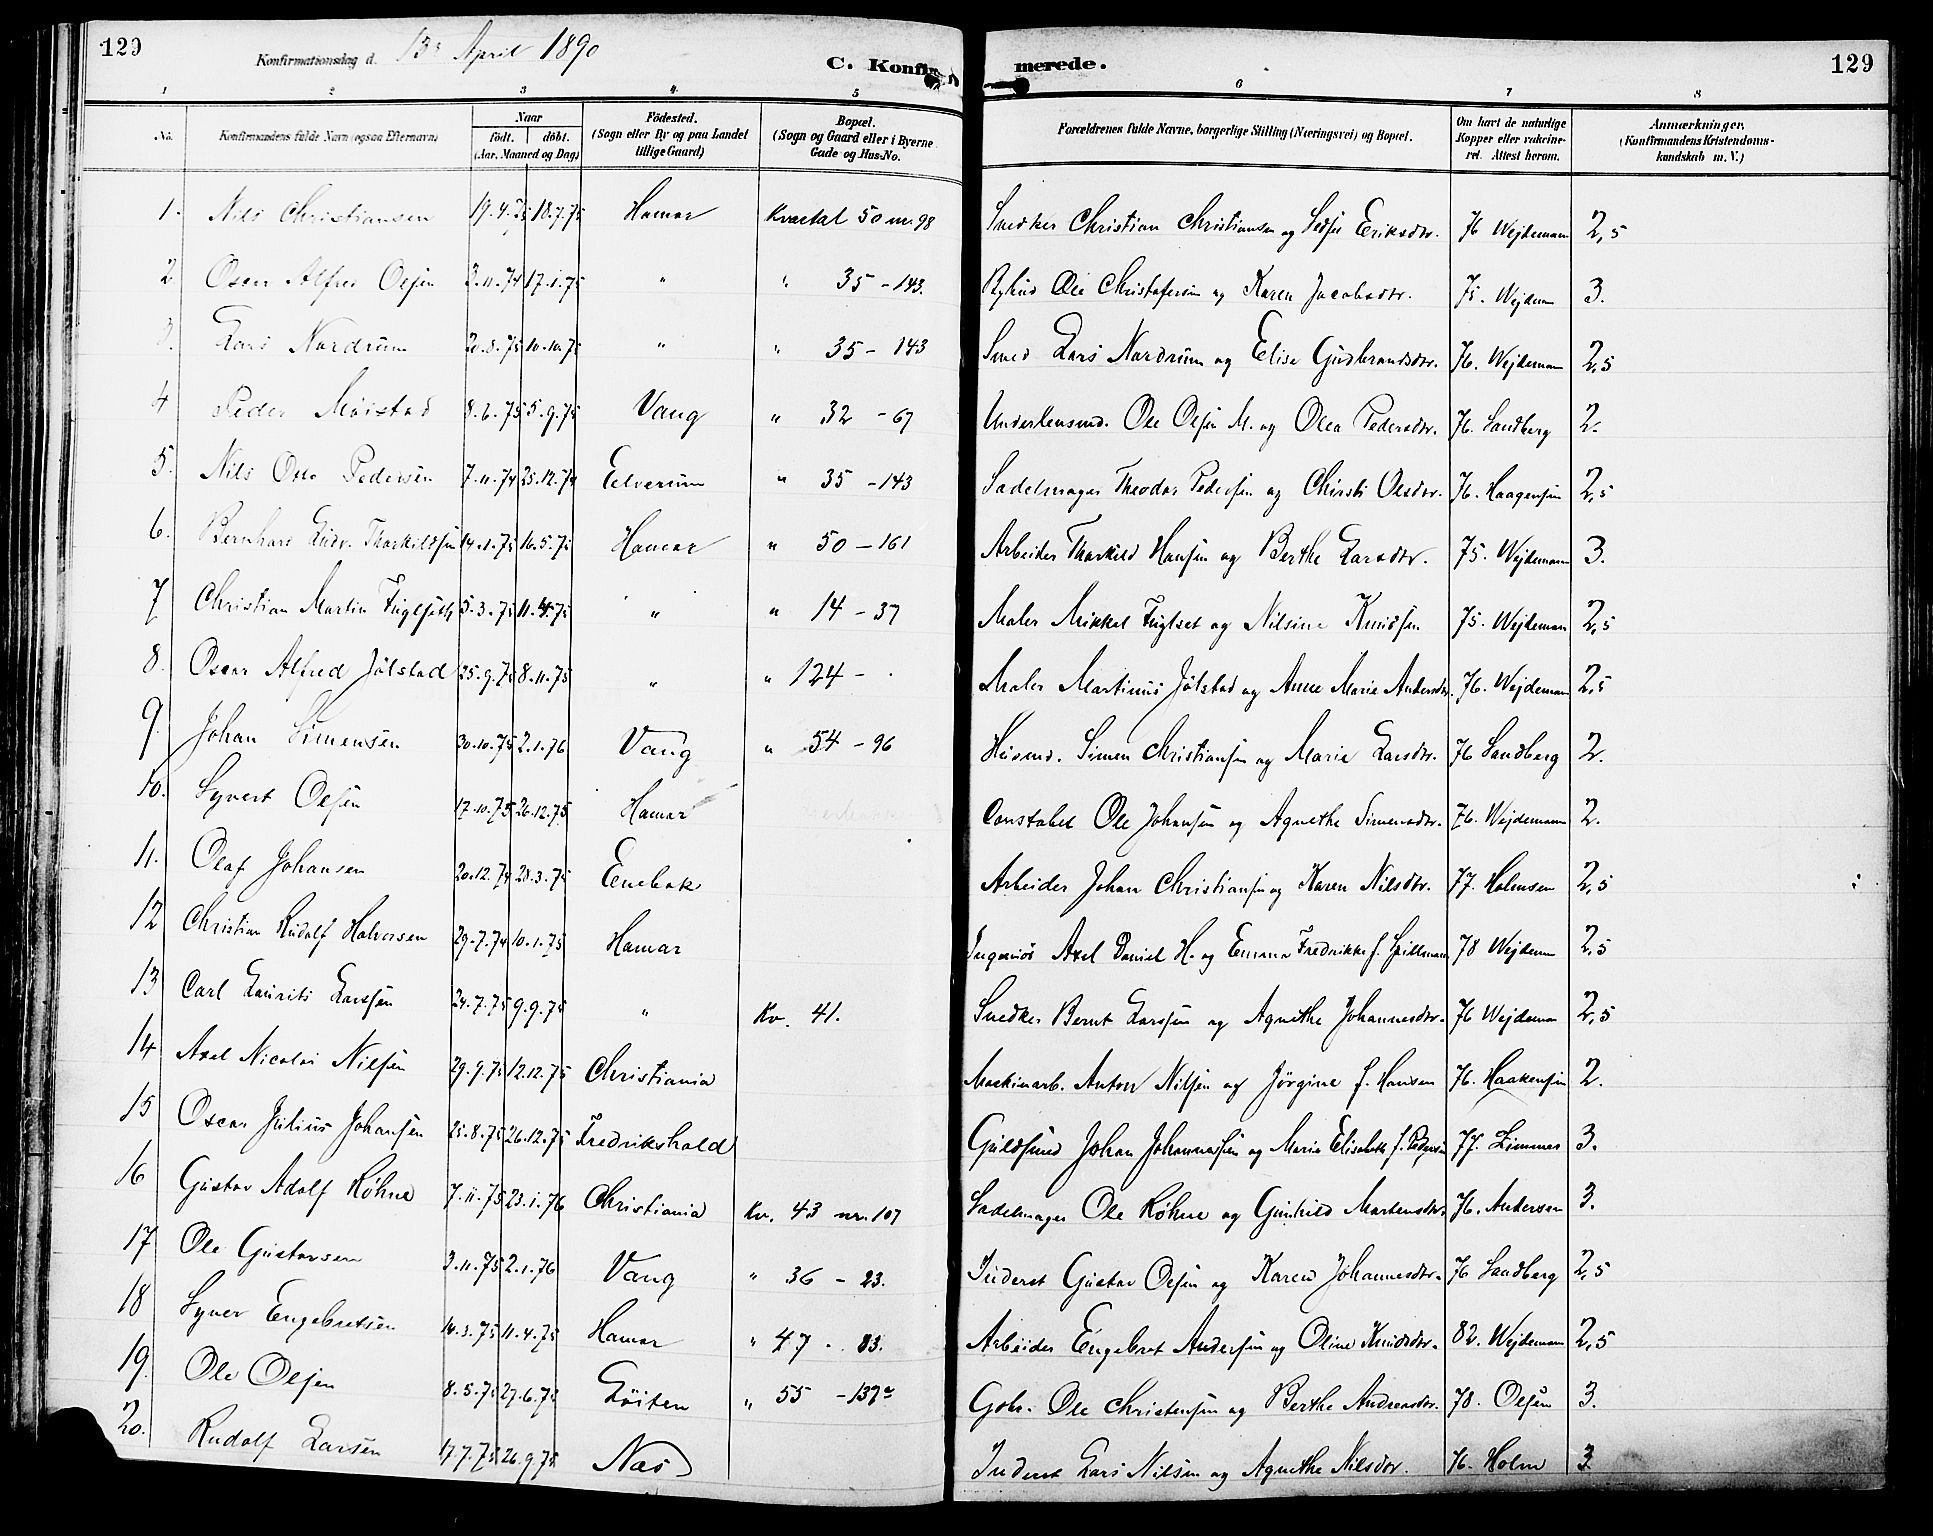 129 Konfirmationsdag d. 13de April 1890 C. Konfir merede. 129
1 2 3 4 5 6 7 8
No. Konfirmandens fulde Navn (ogsaa Efternavn) Naar født. døbt. (Aar, Maaned og Dag) Fødested. (Sogn eller By og paa Landet tillige Gaard) Bopæl. (Sogn og Gaard eller i Byerne Gade og Hus-No. Forældrenes fulde Navne, borgerlige Stilling (Næringsvei) og Bopæl. Om havt de naturlige Kopper eller vakcineret. Attest herom. Anmærkninger, (Konfirmandens Kristendomskundskab m. V.)
1. Nils Christiansen 19.4.75 18.7.75 Hamar Kvartal 50 nr 98 Snedker Christian Christiansen og Eriksdtr. 76 Wejdemann 2,5
2 Oscar Alfred Olsen 3.11.74 17.1.75 " " 35 - 143. Ole Christofersen og Karen Jacobsdtr. 75. Wejdem 3.
3. Lars Nordrum 20.8.75 10.10.75 " " 35 - 143 Smed Lars Nordrum og Elise Gudbrandsdtr. 76. Wejdemann 2,5
4 Peder Moistad 8.2.75 5.9.75 Vang " 32 - 67 Underlensmd. Ole Olsen M. og Olea Pedersdtr. 76. Sandberg 2.
5. Nils Otto Pedersen 7.11.74 25.12.74 Eelverum " 35 - 143 Sadelmager Theodor Pedersen og Chirsti Olsdtr. 76. Haagensen 2,5
6. Bernhard Ludv. Thorkildsen 14.1.75 16.5.75 Hamar " 50 - 161 Arbeider Thorkild Hansen og Berthe Larsdtr. 75. Wejdemann 3.
7 Christian Martin Fuglseth 5.3.75 11.4.75 " " 14 - 37 Maler Mikkel Fuglset og Nilsine Knudsen 75. Wejdeman 2,5
8. Oscar Alfred Jølstad 25.9.75 8.11.75 " " 124 - . Maler Martinus Jølstad og Anne Marie Andersdtr. 76. Wejdemann 2,5
9. Johan Simensen 30.10.75 2.1.76 Vang " 54 - 96 Husmd. Simen Christiansen og Marie Larsdtr. 76 Sandberg 2.
10. Syvert Olsen 17.10.75 26.12.75 Hamar Constabel Ole Johansen og Agnethe Simensdtr. 76. Wejdemann 2.
11. Olaf Johansen 20.12.74 28.3.75 Enebak Arbeider Johan Christiansen og Karen Nilsdtr. 77. Holmsen 2,5
12 Christian Rudolf Halvorsen 29.7.74 10.1.75 Hamar Ingeniør Axel Daniel H. og Emma Fredrikke f. Spillmann 78 Wejdem 2,5
13 Carl Laurits Larsen 24.7.75 9.9.75 " Kv. 41. Snedker Bernt Larssen og Agnethe Johannesdtr. 76 Wejdeman 2,5
14 Axel Nicolai Nilsen 29.9.75 12.12.75 Christiania Maskinarb. Anton Nilsen og Jørgine f. Hansen 76. Haakensen 2.
15 Oscar Julius Johansen 25.8.75 26.12.75 Fredrikshald Guldsmed Johan Johannessen og Marie Elisabeth f. Pedersen 77. Zimmer 3.
16 Gustav Adolf Røhne 7.11.75 23.1.76 Christiania Kv. 43 nr. 107 Sadelmager Ole Røhne og Gunhild Martensdtr. 76. Andersen 3.
17 Ole Gustavsen 3.11.75 2.1.76 Vang " 36 - 23. Inderst Gustav Olsen og Karen Johannesdtr. 76 Sandberg 2,5
18 Syver Engebretsen 14.3.75 11.4.75 Hamar " 47 - 83. Arbeider Engebret Andersen og Oline Knudsdtr. 82. Wejdemann 2,5
19. Ole Olsen 8.5.75 27.6.75 Løiten " 55 - 137 Gbr. Ole Christensen og Berthe Andreasdtr. 78. Olsen 3.
20. Rudolf Larsen 17.7.75 26.9.75 Næs Inderst Lars Nilsen og Agnethe Nilsdtr. 76. Holm 3